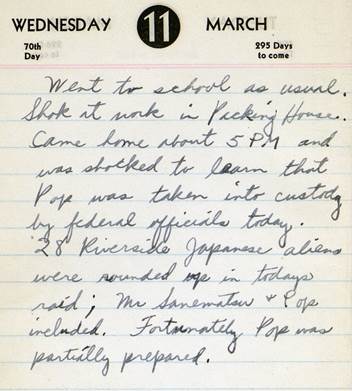 WEDNESDAY 11 MARCH
70th Day
295 Days to come
Went to school as usual.
Shok at work in Packing House.
Came home about 5 PM and
was shocked to learn that
Pop was taken into custody
by federal officials today.
28 Riverside Japanese aliens
were rounded up in todays
raid; Mr Sanematsu & Pop
included. Fortunately Pop was
partially prepared.